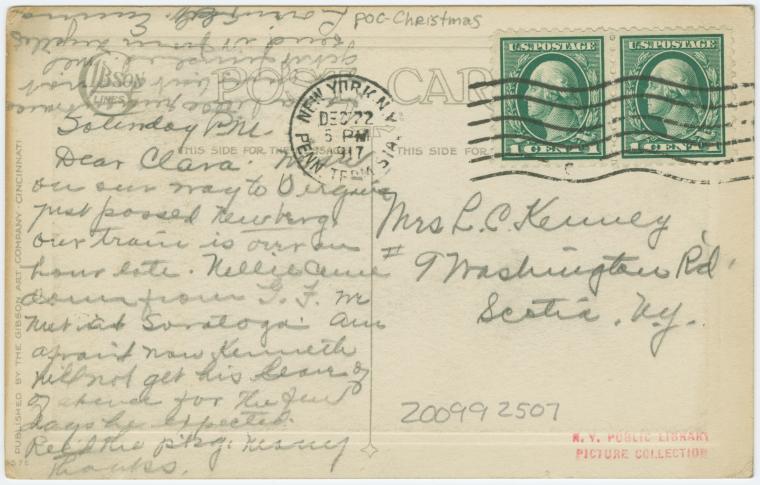 POC-Christmas
GIBSON
LINES
POST CARD
THIS SIDE FOR THE
THIS SIDE FOR
NEW YORK, N.Y.
DEC 22
5 PM
1917
PENN. TERM. STA.
U.S. POSTAGE
1 CENT 1
U.S. POSTAGE
1 CENT 1
Saturday P.M.
Dear Clara.
on our way to Virginia
just passed Newberg.
our train is over an
hour late. Nellie came
down from G. F. we
met at Saratoga. Am
afraid now Kenneth
will not get his leave of
of absence for the few
days he expected.
Rec'd the pkg. many
thanks.
Mrs L. C. Kenney
# 9 Washington Rd.
Scotia, N.Y.
200992507
N. Y. PUBLIC LIBRARY
PICTURE COLLECTION
PUBLISHED BY THE GIBSON ART COMPANY, CINCINNATI